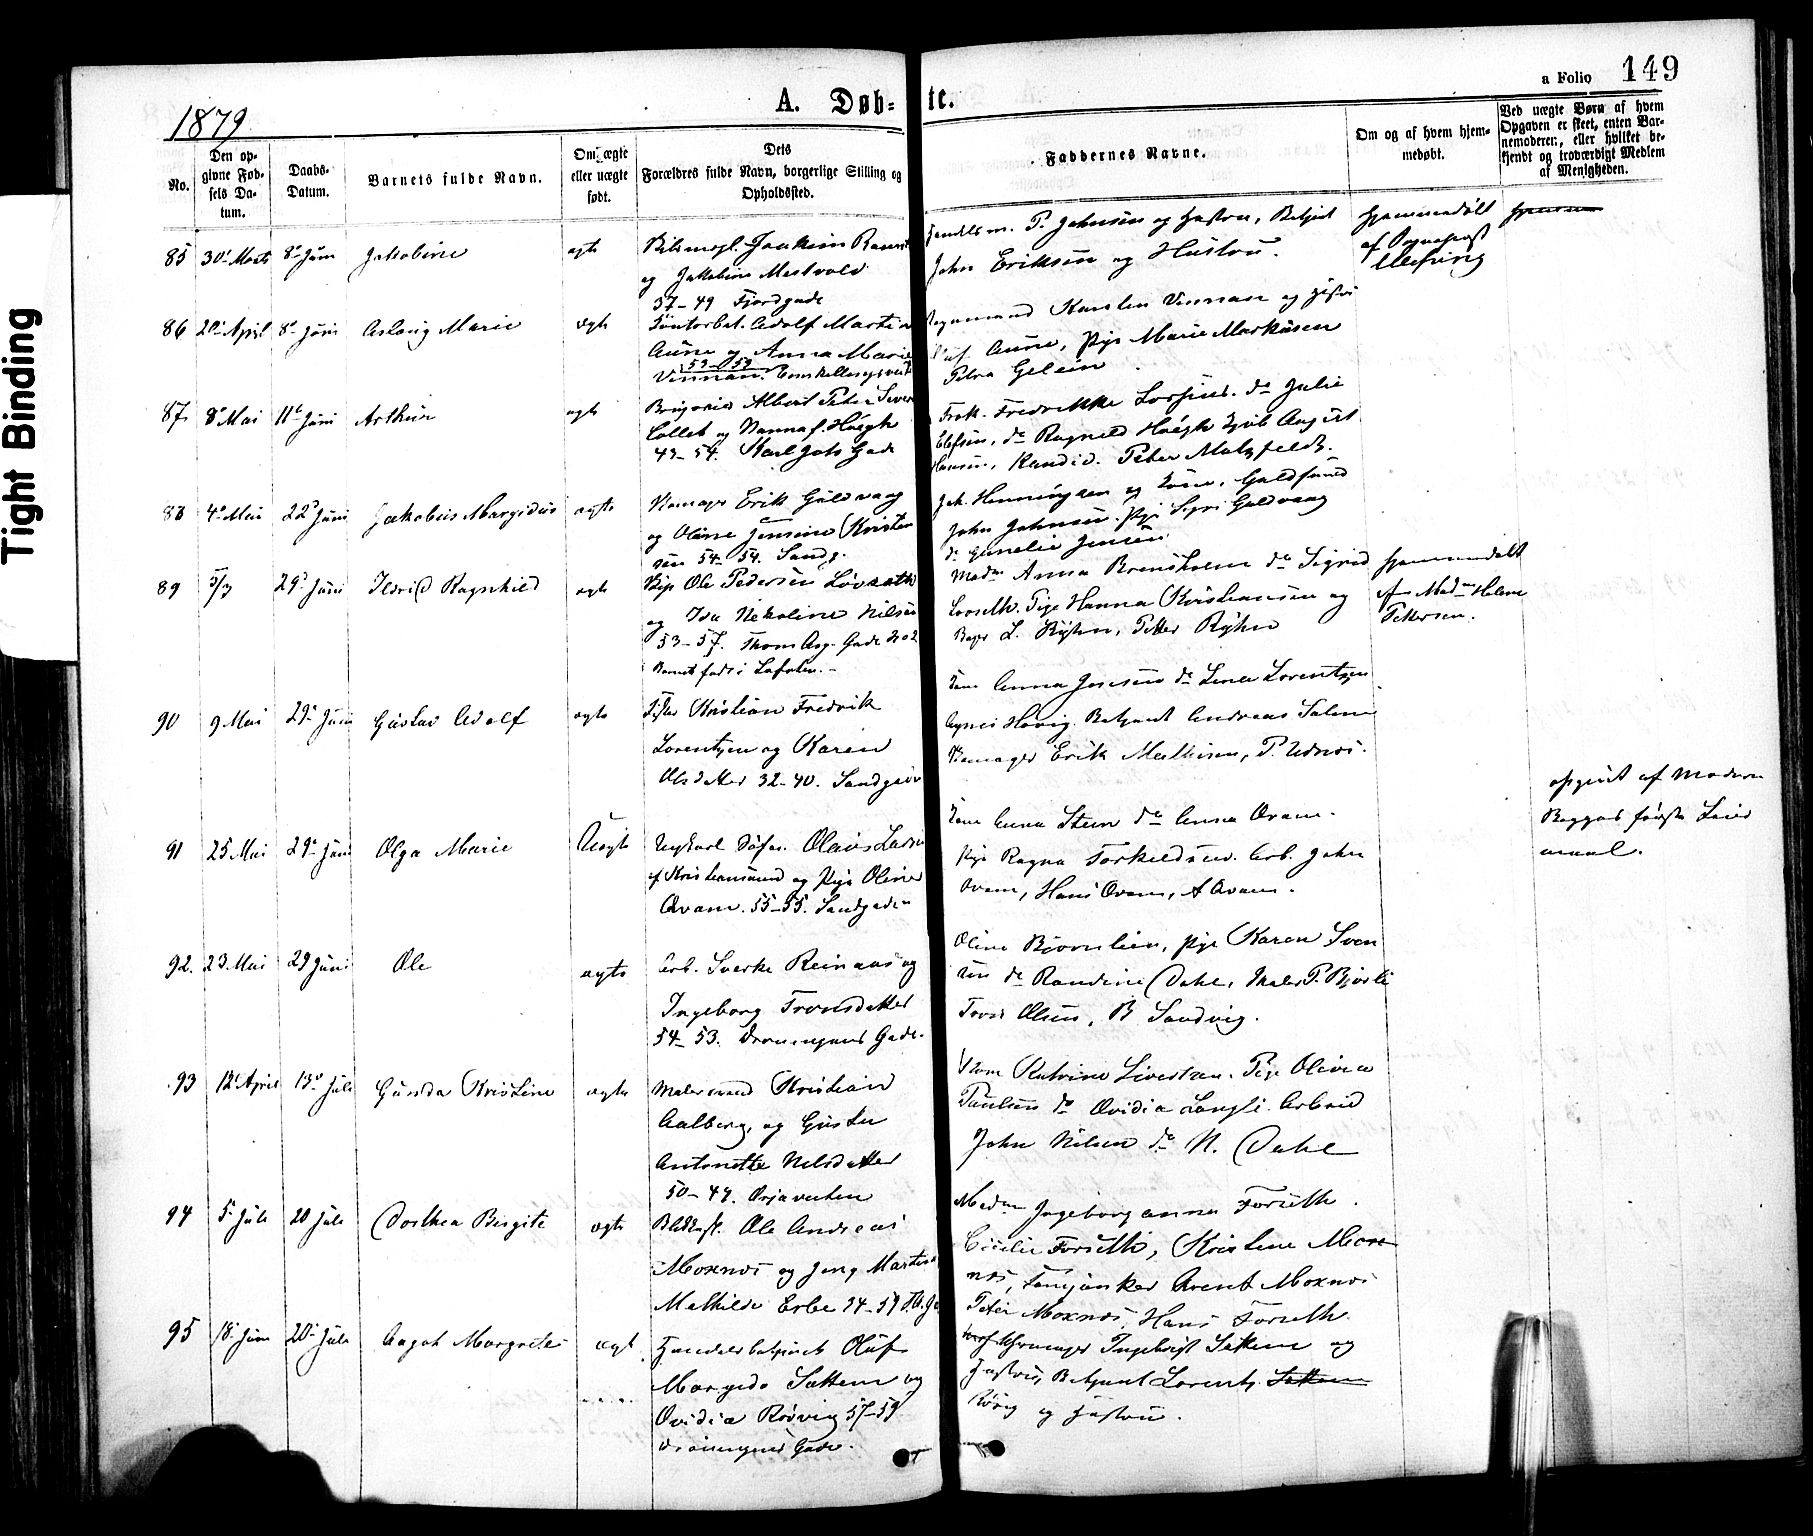 Tight Binding
1879
A. Døb- te.
a Folio 149
No.
Den opgivne Fødsels Datum.
Daabs-Datum.
Barnets fulde Navn.
Om ægte eller uægte født.
Dets Forældres fulde Navn, borgerlige Stilling og Opholdssted.
Faddernes Navne.
Om og af hvem hjemmedøbt.
Ved uægte Børn af hvem Opgaven er skeet, enten Barnemoderen, eller hvilket bekjendt og troværdigt Medlem af Menigheden.
85 30 Marts 8 Juni Jakobine ægte
og Jakobine Mestvold
57-49 Fjordgade
P. Johnsen og Hustru, Betjent
John Eriksen og Hustru.
hjemmedøbt
af Sognepræst
86 20 April 8 Juni Aslaug Marie ægte
Adolf Martin
Aune og Anna Marie
53-53
Vinnan.
Karsten Vinnan og Hustru
Aune, Pige Marie Markusen
Petra Gelein
87 8 Mai 11 Juni Arthur ægte
Albert Peter Sever
Collet og Nanna f. Høegh
43-54. Karl Johs Gade
Frøk. Fredrikke Lossius. do Julie
Elefsen, do Ragnild Høegh August
Hansen, Kandid. Peter Motzfeldt.
88 4 Mai 22 Juni Jakobus Margidius ægte
Kemager Erik Guldvaag
og Oline Jensine Kristen
sen 54-54. Sandg.
Joh. Henningsen og Kone, Guldsmed
John Johnsen. Pige Guldvaag
do Gunelie Jensen
89 5/3 29 Juni Ildrid Ragnhild ægte
Ole Pedersen Lovseth
og Ida Nekoline Nilsen
53-57. Thom Ang. Gade No 2
Barnet født i Lofoten.
Madm Anna Brensholm do Sigrid
Lovseth. Pige Hanna Kristiansen og
L. Ryhn, Petter Ryhn
hjemmedøbt
af Madm Helene
Pettersen.
90 9 Mai 29 Juni Gustav Adolf ægte
Fisker Kristian Fredrik
Lorentzen og Karen
Olsdatter 32-40. Sandgaden
Kone Anna Jensen do Lina Lorentzen
Agnes Hovig. Betjent Andreas Salene
Kemager Erik Mathisen, P. Udnes.
91 25 Mai 29 Juni Olga Marie Uægte
Ungkarl Olaus Larsen
af Kristiansund og Pige Oline
Qvam. 55-55. Sandgaden
Kone Anna Steen do Anna Qvam.
Pige Ragna Torkildsen. Arb. John
Qvam, Hans Qvam, A Qvam.
opgivet af Moderen
Begges første Leier
maal.
92. 23 Mai 29 Juni Ole ægte
Arb. Sverke Reinaas og
Ingeborg Tronsdatter
54-53. Dronningens Gade.
Oline Bjørnlien, Pige Karen Sven
sen do Randine Dahl, Maler P. Bjørli
Olsen, B Sandvig.
93 12 April 13 Juli Gunda Kristine ægte
Malersvend Kristian
Aalberg, og Gustu
Antonette Nilsdatter
50-49. Ørjaveiten
Kone Katrine Sivertsen. Pige Olivia
Paulsen do Ovidia Langli. Arbeid
John Nilsen do N. Dahl
94 5 Juli 20 Juli Dorthea Birgite ægte
Ole Andreas
Moxnes og Jenny Martine
Mathilde Erbe 34-59
Madm Ingeborganna Forseth.
Cecilie Forseth, Kristine Mox
nes, Fanejunker Arent Moxnes
Peter Moxnes, Hans Forseth.
95 18 Juni 20 Juli Aagot Margrete ægt
Handelsbetjent Oluf
Margido Sættem og
Ovidia Rørvig 57-59
Dronningens Gade.
Ingebrigt Sættem og
Hustru, Betjent Lorentz Sættem
Rørvig og Hustru.